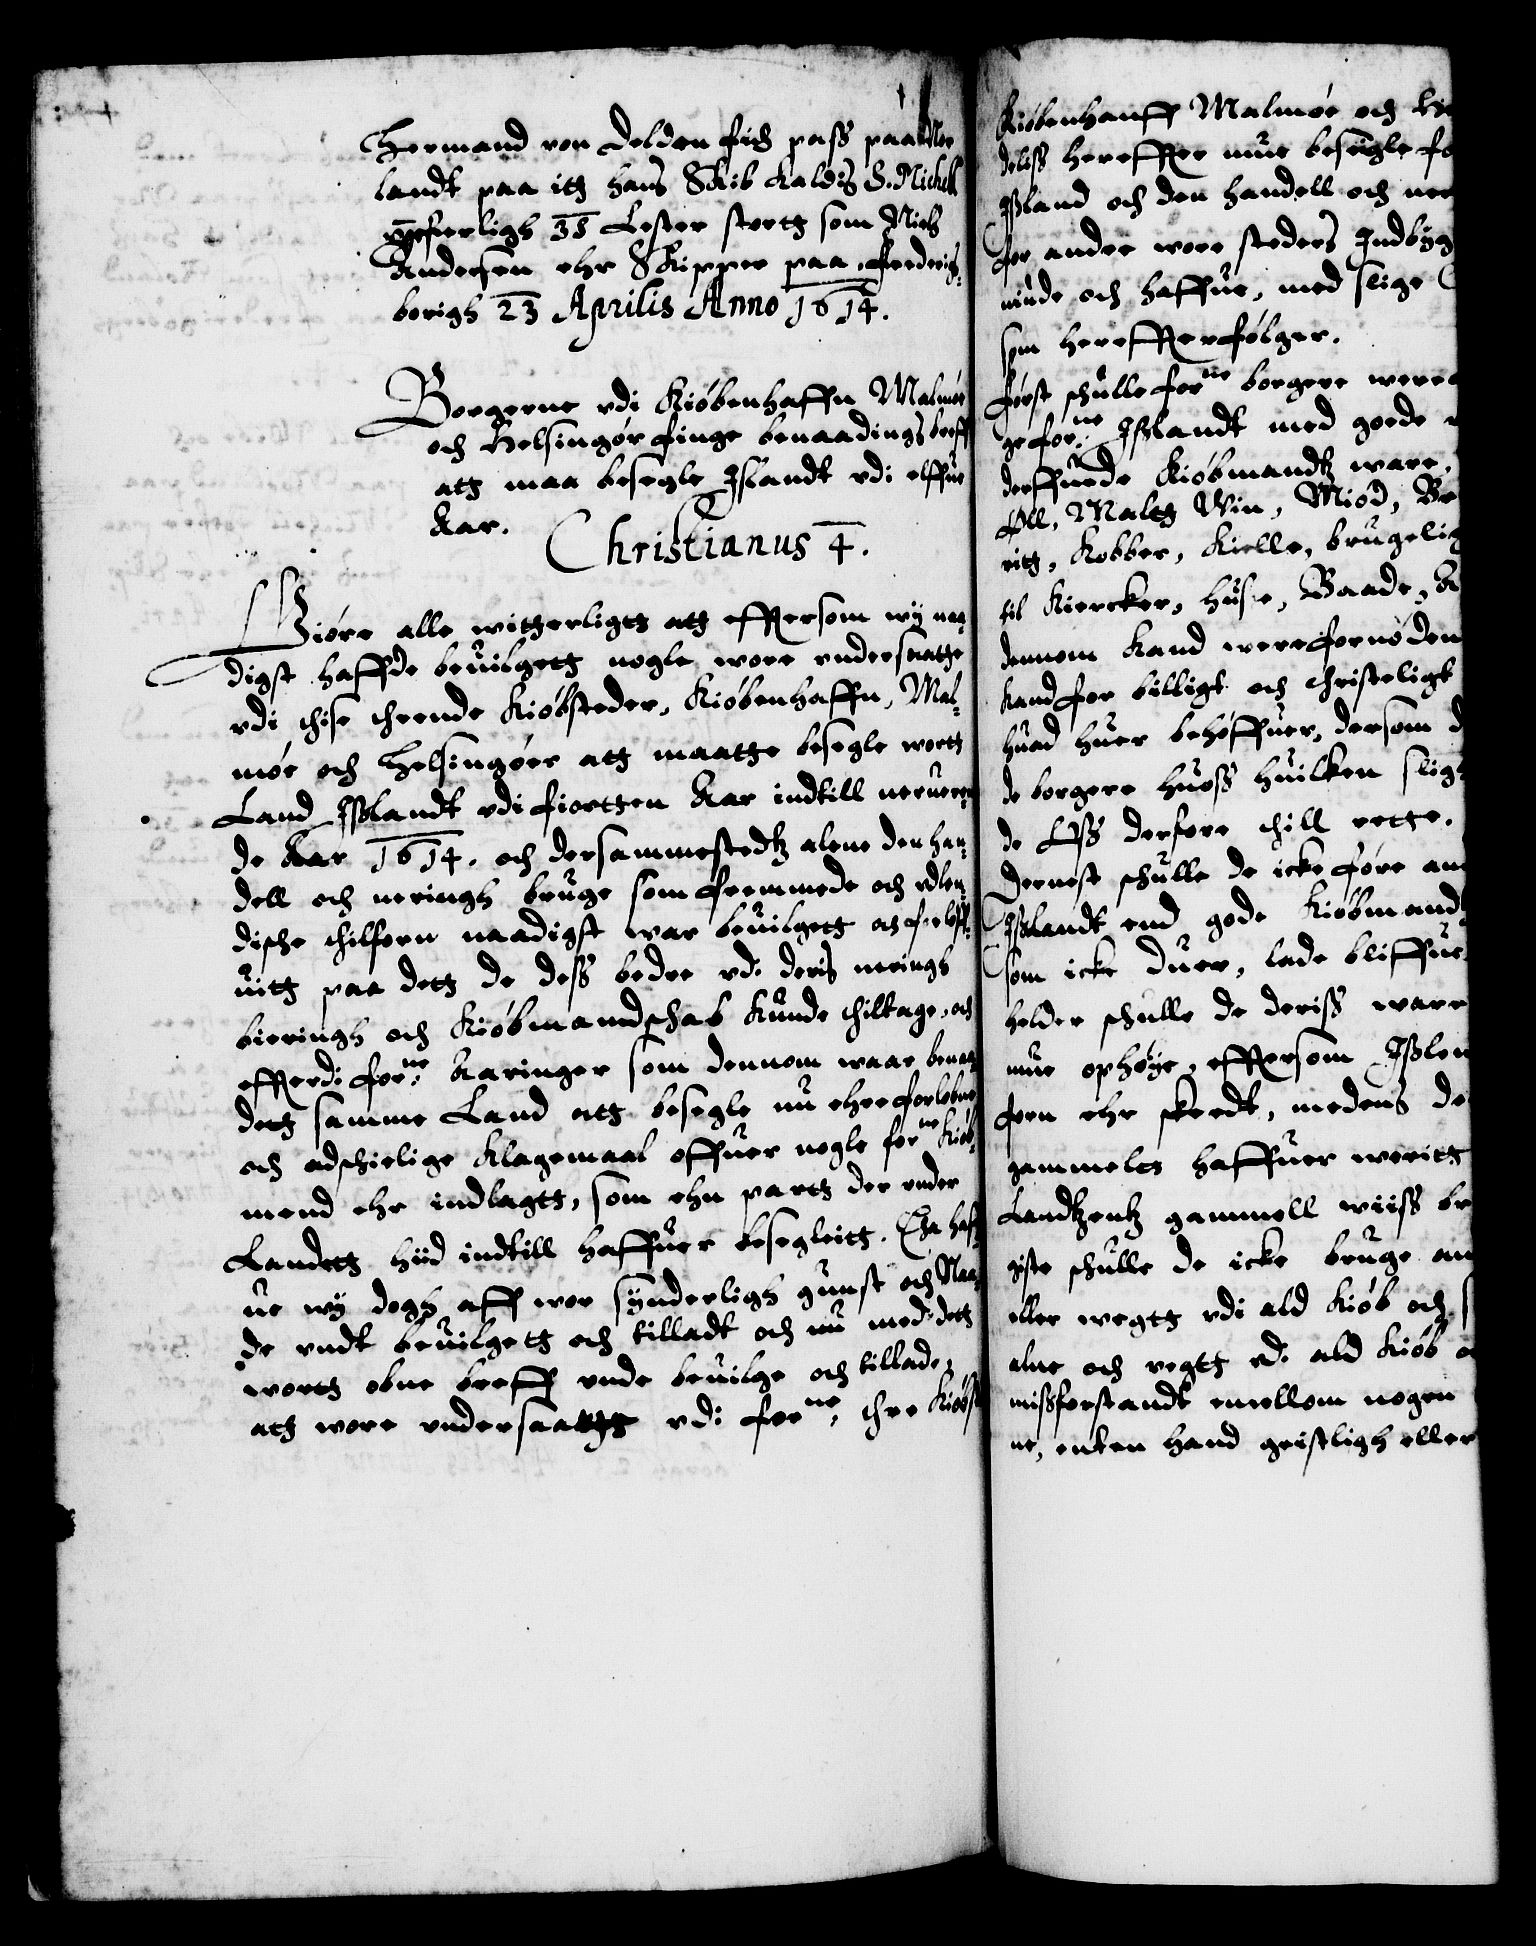 Hermand von Delden fich pass paa Nor
landt paa itt hans Skib kaldis S. Michell
ungeferligh 38 Lester stortt som Niels
Andersen ehr Skipper paa, Frederigs-
borigh 23 Aprilis Anno 1614.
Borgerne vdi Kiøbenhaffn Malmøe
och Helsingør finge benaadings breff
att maa besegle Islandt vdi elffue
Aar.
Christianus 4.
Giøre alle witterligtt att efftersom wy naa-
digst haffde beuilgett nogle wore vndersaatte
vdi thise thrende Kiøbsteder, Kiøbenhaffn, Mal-
møe och Helsingøer att maatte besegle wortt
Land Jsslandt vdi fiortten Aar indtill neruere-
de Aar 1614. och dersammestedtz alene den han-
dell och neringh bruge som fremmede och vdlen-
dische thilforn naadigst war beuilgett och forløff-
uitt paa dett de dess bedre vdi deris nerings
bieringh och Kiøbmandschab kunde thiltage, och
efftterdi forne Aaringer som dennom waar benaa-
dett samme Land att besegle nu ehre forløbne
och adschielige Klagemaal offuer nogle forne Kiøb-
mend ehr indlagtt, som ehn partt der vnder
Landett hiid indtill haffuer besegleitt. Tha haff-
ue wy dogh aff wor synderligh gunst och Naa-
de vndt beuilgett och tilladt och nu med dett
wortt obne breff vnde beuilge och tillade,
att wore vndersaatte vdi forne, thre Kiøbst
Kiøbenhauff Malmøe och He
deliss hereffter mue besegle fo
Jssland och den handell och ner
for andre wore steders Jndbyg
niude och haffue, med slige
som hereffterfølger.
Først schulle forne borgere were
ge forne Jsslandt med goede
derffuede Kiøbmandtz ware,
Øll, Maltt Win, Miød, Br
ritt, Kobber, Kielle, brugelig
til Kiercker, huse, Baade, A
dennom kand were fornøden
kand for billigt och christeligt
huad huer behøffuer, dersom d
de borgere huoss huilken slig
de Oss derfore thill rette.
Dernest schulle de icke føre an
Jsslandt end gode Kiøbmand
som icke duer, lade bliffue
helder schulle de deriss ware
mue ophøye, efftersom Jsslen
forn ehr skeedt, medens de
gammeltt haffuer weritt
Landtzentz gammell wiiss br
giste schulle de icke bruge an
eller wegtt vdi ald Kiøb och s
alne och vegtt vdi ald Kiøb o
missforstandt emellom nogen
ne, enten hand geistligh eller